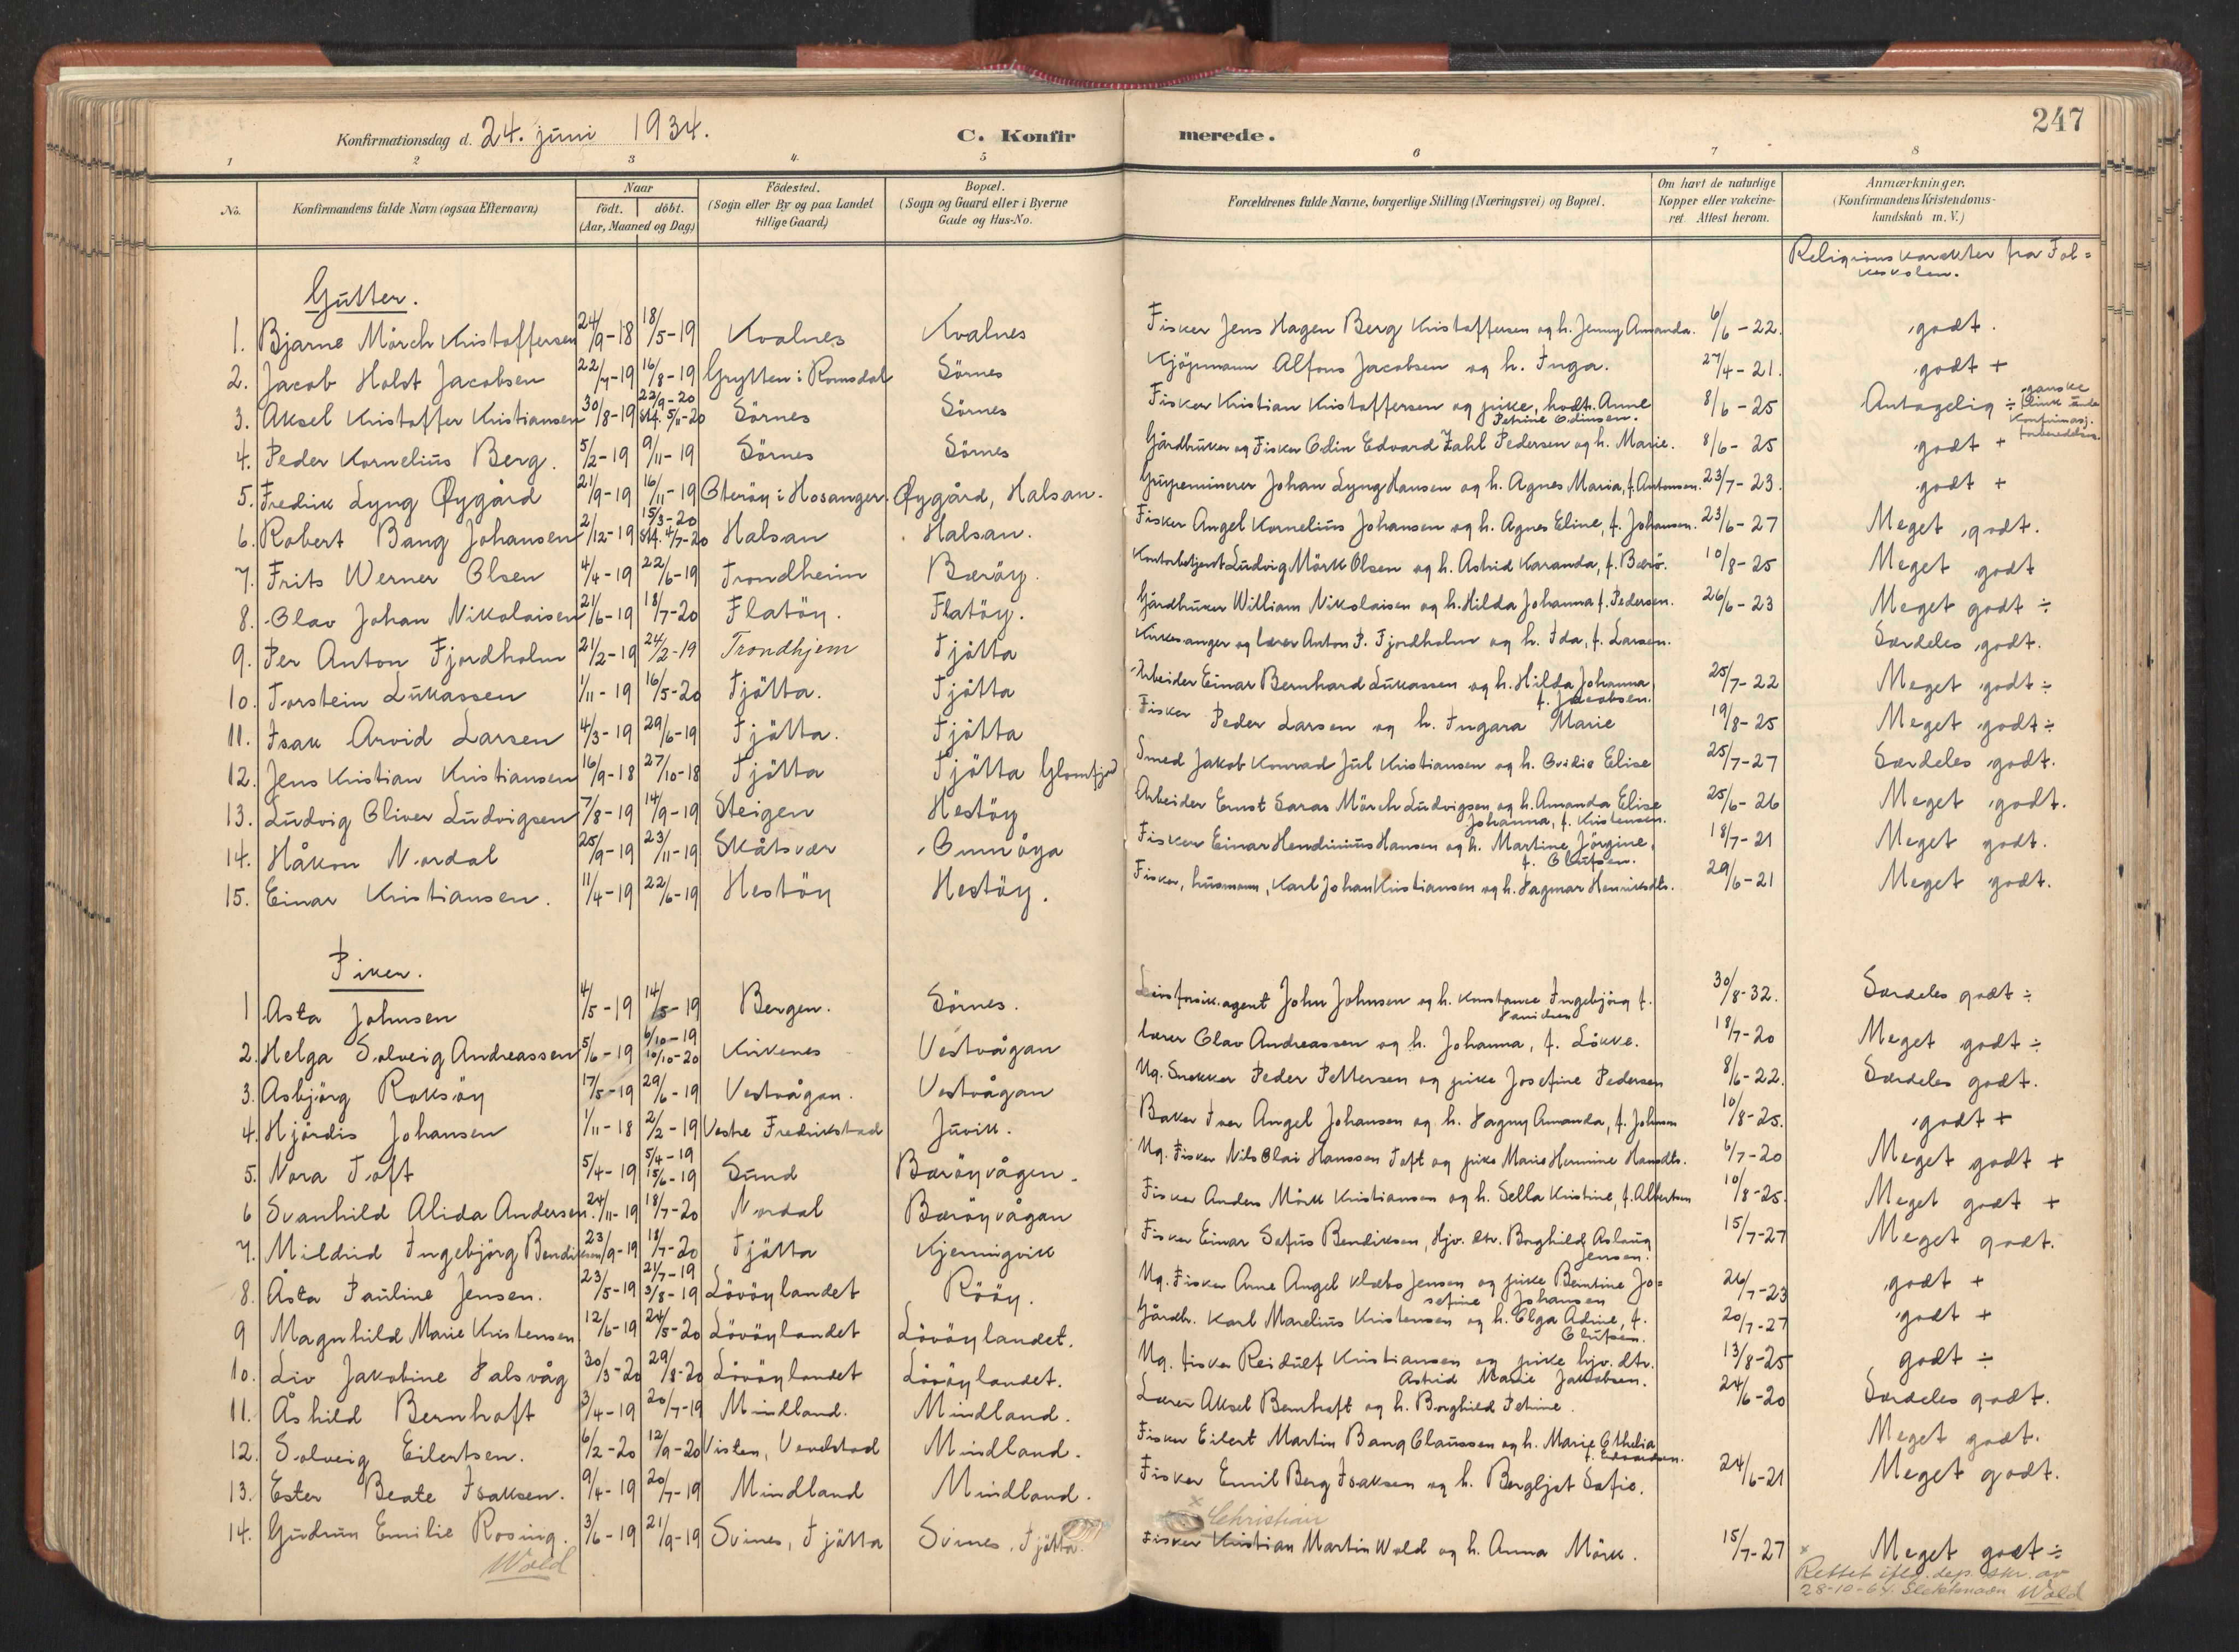 247
Konfirmationsdag d. 24. juni 1934.
C. Konfir
merede.
1 2 3 4 5 6 7 8
No.
Konfirmandens fulde Navn (ogsaa Efternavn)
Naar
födt. döbt.
(Aar, Maaned og Dag)
Födested.
(Sogn eller By og paa Landet
tillige Gaard)
Bopæl.
(Sogn og Gaard eller i Byerne
Gade og Hus-No.
Forældrenes fulde Navne, borgerlige Stilling (Næringsvei) og Bopæl.
Om havt de naturlige
Kopper eller vakcine-
ret. Attest herom.
Anmærkninger.
(Konfirmandens Kristendoms-
kundskab m. V.)
Religionskarakter fra Fol=
keskolen.
Gutter.
1. Bjarne Mörch Kristoffersen 24/9-18 18/5-19 Kvalnes Kvalnes Fisker Jens Hagen Berg Kristoffersen og h. Jenny Amanda. 6/6-22. godt.
2. Jacob Holst Jacobsen 22/7-19 16/8-19 Grytten i Romsdal Sörnes Kjöpmann Alfons Jacobsen og h. Inga. 27/4-21. godt +
3. Aksel Kristoffer Kristiansen 30/8-19 22/9-20 Stf. 5/11-20 Sörnes Sörnes Fisker Kristian Kristoffersen og pike, hvdt. Anne
Petrine Odinsen. 8/6-25 Antagelig ÷ ganske
flink under
Konfirmasj.
forberedelsen.
4. Peder Kornelius Berg. 5/2-19 9/11-19 Sörnes Sörnes Gårdbruker og Fisker Odin Edvard Zahl Pedersen og h. Marie. 8/6-25 godt +
5. Fredrik Lyng Øygård 21/9-19 16/11-19 Osteröy i Hosanger. Øygård, Halsan. Grubeminerer Johan Lyng Hansen og h. Agnes Maria, f. Antonsen. 23/7-23. godt +
6. Robert Bang Johansen 2/12-19 15/3-20 Stf. 4/7-20 Halsan Halsan. Fisker Angel Kornelius Johansen og h. Agnes Eline, f. Johansen. 23/6-27 Meget godt.
7. Frits Werner Olsen 4/4-19 22/6-19 Trondheim Bæröy. Kontorbetjent Ludvig Mörk Olsen og h. Astrid Karanda, f. Bærö. 10/8-25 Meget godt
8. Olav Johan Nikolaisen 21/6-19 18/7-20 Flatöy. Flatöy. Gårdbruker William Nikolaisen og h. Hilda Johanna f. Pedersen. 26/6-23 Meget godt ÷
9. Per Anton Fjordholm 21/2-19 24/2-19 Trondhjem Tjötta Kirkesanger og lærer Anton P. Fjordholm og h. Ida, f. Larsen. Særdeles godt.
10. Torstein Lukassen 1/11-19 16/5-20 Tjötta. Tjötta Arbeider Einar Bernhard Lukassen og h. Hilda Johanna
f. Jacobsen. 25/7-22 Meget godt ÷
11. Isak Arvid Larsen 4/3-19 29/6-19 Tjötta. Tjötta Fisker Peder Larsen og h. Ingara Marie 19/8-25 Meget godt ÷
12. Jens Kristian Kristiansen 16/9-18 27/10-18 Tjötta Tjötta Glomfjord Smed Jakob Konrad Jul Kristiansen og h. Ovidie Elise 25/7-27 Særdeles godt.
13. Ludvig Oliver Ludvigsen 7/8-19 14/9-19 Steigen Hestöy Arbeider Ernst Saras Mörch Ludvigsen og h. Amanda Elise
Johanna, f. Kristensen. 25/6-26 Meget godt.
14. Håkon Nordal 25/9-19 23/11-19 Skåtsvær Gunnöya Fisker Einar Hendinius Hansen og h. Martine Jörgine,
f. Olufsen. 18/7-21 Meget godt.
15. Einar Kristiansen. 11/4-19 22/6-19 Hestöy Hestöy. Fisker, husmann, Karl Johan Kristiansen og h. Dagmar Henriksdtr. 29/6-21 Meget godt.
Piker.
1 Asta Johnsen 4/5-19 14/5-19 Bergen. Sörnes. Livsforsik.agent John Johnsen og h. Konstance Ingebjörg f. 30/8-32. Særdeles godt ÷
2. Helga Solveig Andreassen 5/6-19 6/10-19 10/10-20 Kirkenes Vestvågan Lærer Olav Andreassen og h. Johanna, f. Lökke. 18/7-20 Meget godt ÷
3. Asbjörg Roksöy 17/5-19 29/6-19 Vestvågan. Vestvågan Ug. Snekker Peder Pettersen og pike Josefine Pedersen 8/6-22. Særdeles godt.
4. Hjördis Johansen 1/11-18 2/2-19 Vestre Fredrikstad Juvik. Baker Iver Angel Johansen og h. Dagny Amanda, f. Johnsen 10/8-25. godt +
5. Nora Toft 5/4-19 5/4-19 15/6-19 Sund Bæröyvågen. Ug. Fisker Nils Olai Hanssen Toft og pike Marie Hermine Hansdtr. 6/7-20 Meget godt +
6 Svanhild Alida Andersen. 24/11-19 18/7-20 Nordal Bæröyvågan Fisker Anders Mörk Kristiansen og h. Sella Kristine, f. Albertsen 10/8-25. Meget godt +
7. Mildrid Ingebjörg Bendiksen 23/9-19 18/7-20 Tjötta Kjerringvik Fisker Einar Sofus Bendiksen, Hjv. dtr. Borghild Aslaug
Jensen. 15/7-27 Meget godt.
8. Åsta Pauline Jensen. 23/5-19 21/7-19 3/8-19 Lövöylandet Rööy. Ug. Fisker Arne Angel Klæbo Jensen og pike Berntine Jo=
sefine Johansen 26/7-23 godt +
9 Magnhild Marie Kristensen 12/6-19 24/5-20 Lövöylandet Lövöylandet. Gårdb. Karl Marelius Kristensen og h. Olga Adine, f.
Olufsen. 20/7-27 godt +
10. Liv Jakobine Dalsvåg 30/3-20 29/8-20 Lövöylandet Lövöylandet. Ug. fisker Reidulf Kristiansen og pike hjv. dtr.
Astrid Marie Jakobsen. 13/8-25 godt ÷
11. Åshild Bernhoft 3/4-19 20/7-19 Mindland. Mindland. Lærer Aksel Bernhoft og h. Borghild Petrine. 24/6-20 Særdeles godt.
12. Solveig Eilertsen. 6/2-20 12/9-20 Visten, Vevelstad Mindland. Fisker Eilert Martin Bang Claussen og h. Marie Othelia
f. Edvardsen. Meget godt.
13. Ester Beate Isaksen. 9/4-19 20/7-19 Mindland Mindland. Fisker Emil Berg Isaksen og h. Bergljot Sofie. 24/6-21 Meget godt.
× Christian
14. Gudrun Emilie Rosing. 3/6-19 21/9-19 Svines, Tjötta Svines, Tjötta. Fisker Kristian Martin Wold og h. Anna Mörk. 15/7-27 Meget godt ÷
Wold
× Rettet iflg. dep. skr. av
28-10-64. Slektsnavn Wold